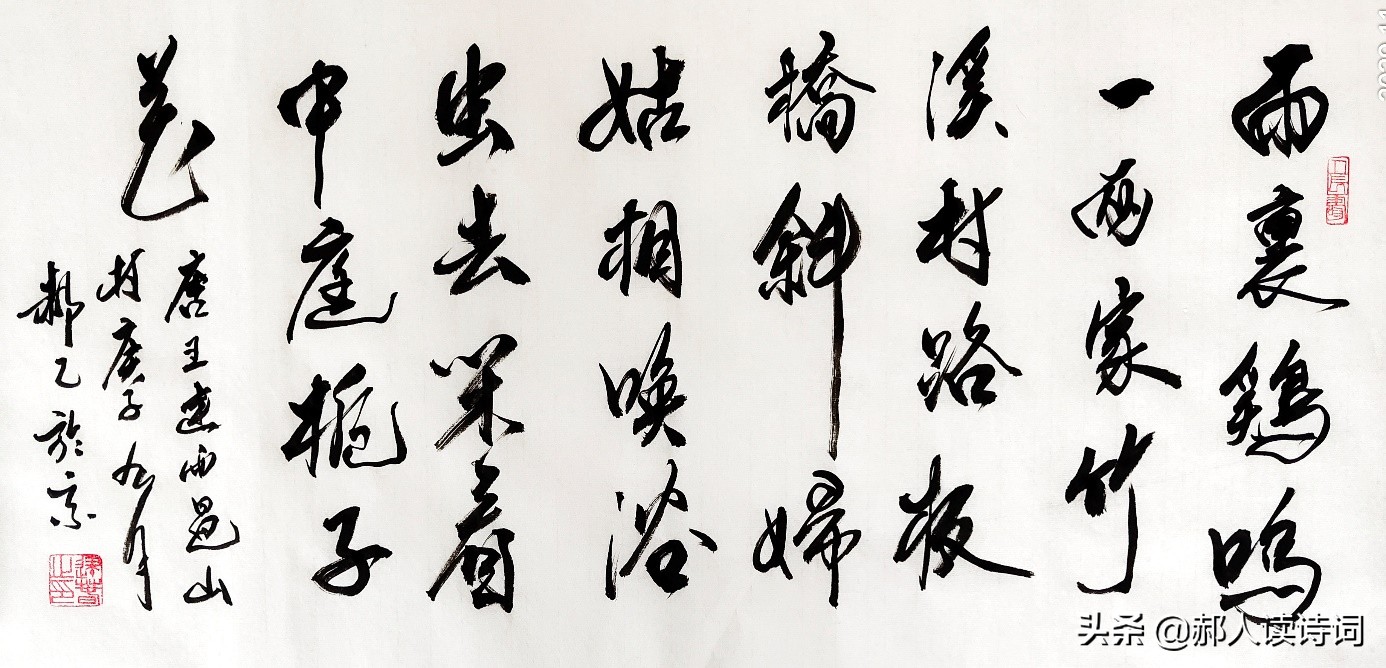 雨裏鷄鳴
一兩家竹
溪村路板
橋斜婦
姑相喚浴
蚕去閑看
中庭梔子
花
唐王建雨過山
村庚子九月
郝乙於京
头条 @郝人读诗词